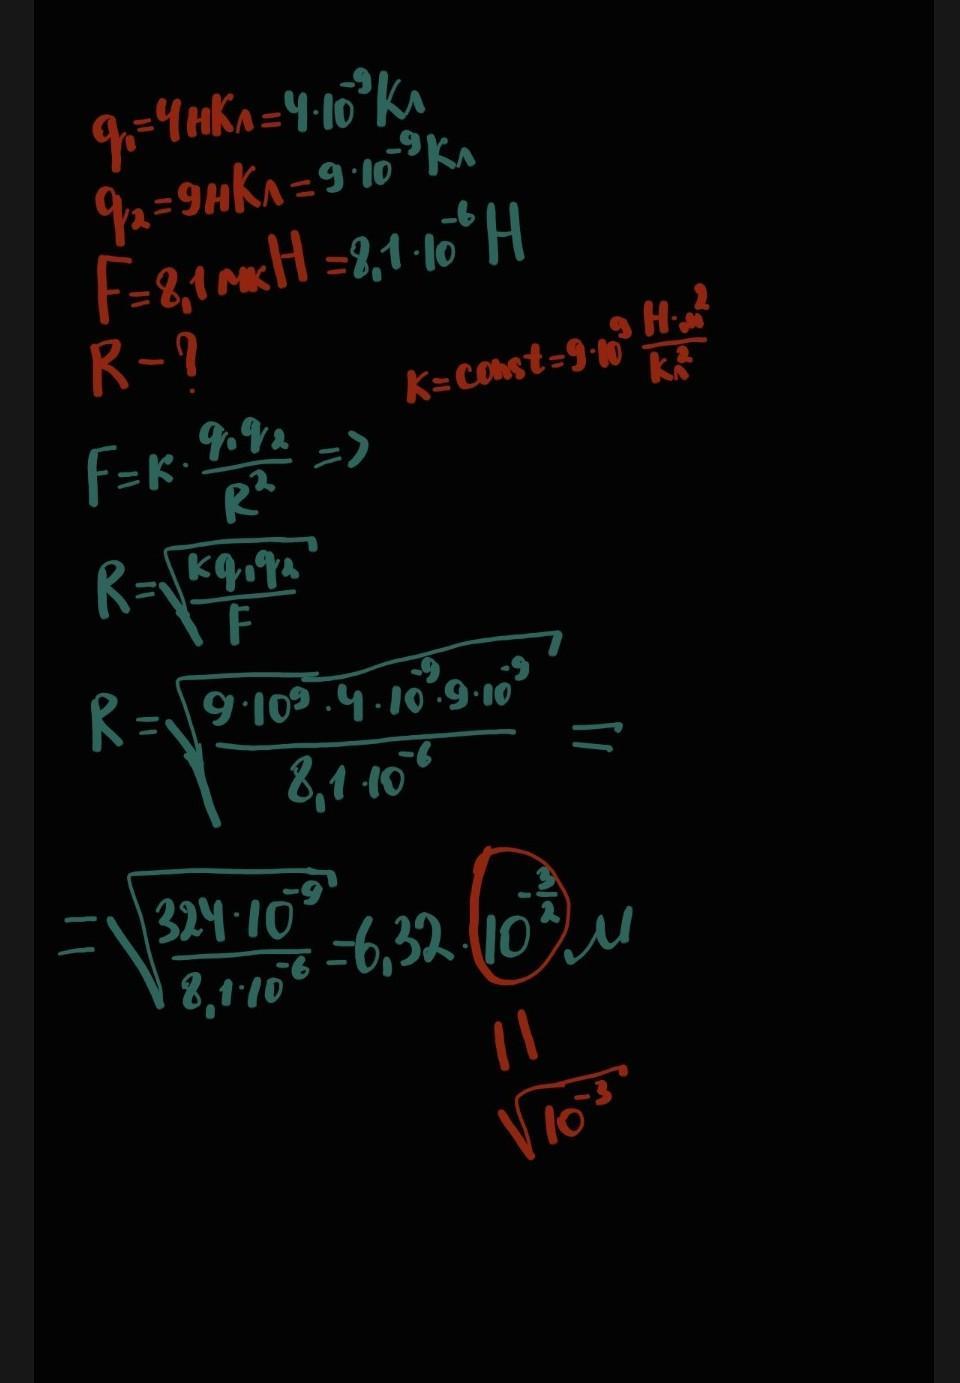 q₁=4нКл=4·10⁻⁹Кл
q₂=9нКл=9·10⁻⁹Кл
F=8,1мкН=8,1·10⁻⁶Н
R-?
к=const=9·10⁹ Н·м²/Кл²
F=к·q₁q₂/R² =>
R=√(кq₁q₂/F)
R=√(9·10⁹·4·10⁻⁹·9·10⁻⁹/8,1·10⁻⁶) =
=√(324·10⁻⁹/8,1·10⁻⁶)=6,32·10^(-3/2) м
||
√10⁻³